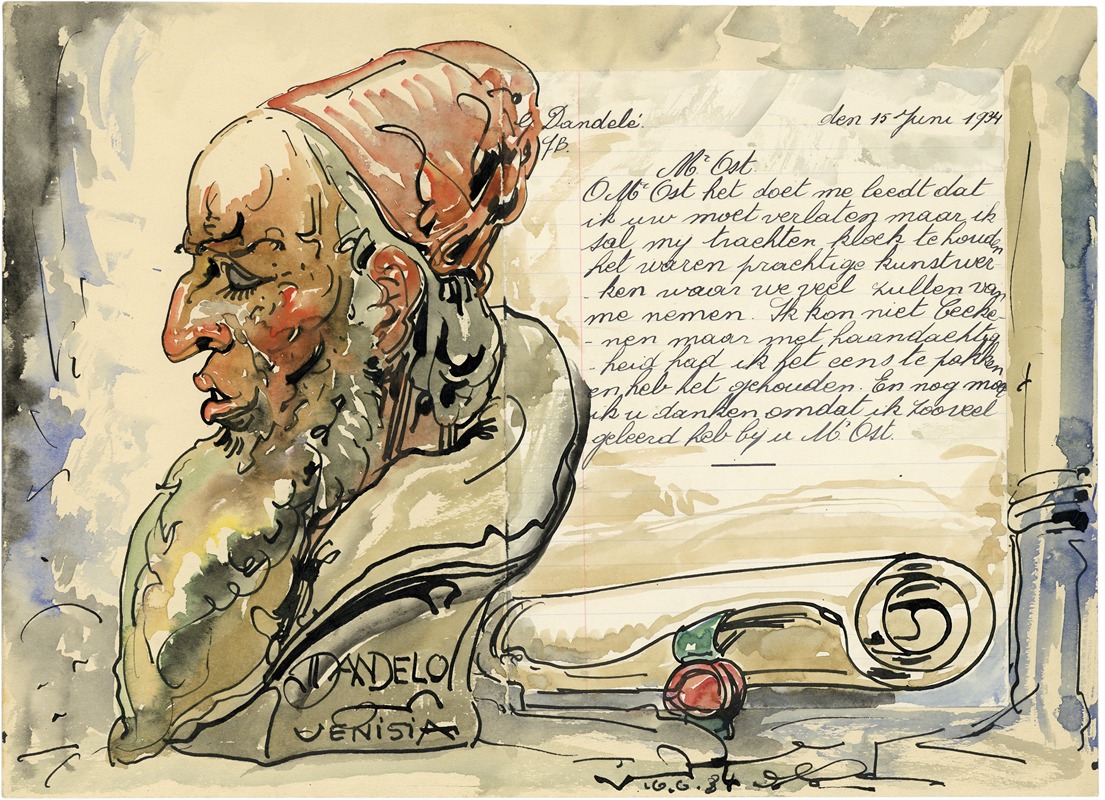 Dandelé.
den 15 Juni 1934
Mr Ost
O Mr Ost het doet me leedt dat
ik uw moet verlaten maar ik
sal my trachten kloek te houden
het waren prachtige kunstwer-
-ken waar we veel zullen van
me nemen. Ik kon niet teeke-
-nen maar met haandachtig
-heid had ik het eens te pakken
en heb het gehouden. En nog moet
ik u danken omdat ik zooveel
geleerd heb by u Mr Ost.
DANDELO
VENISIA
16.6.34